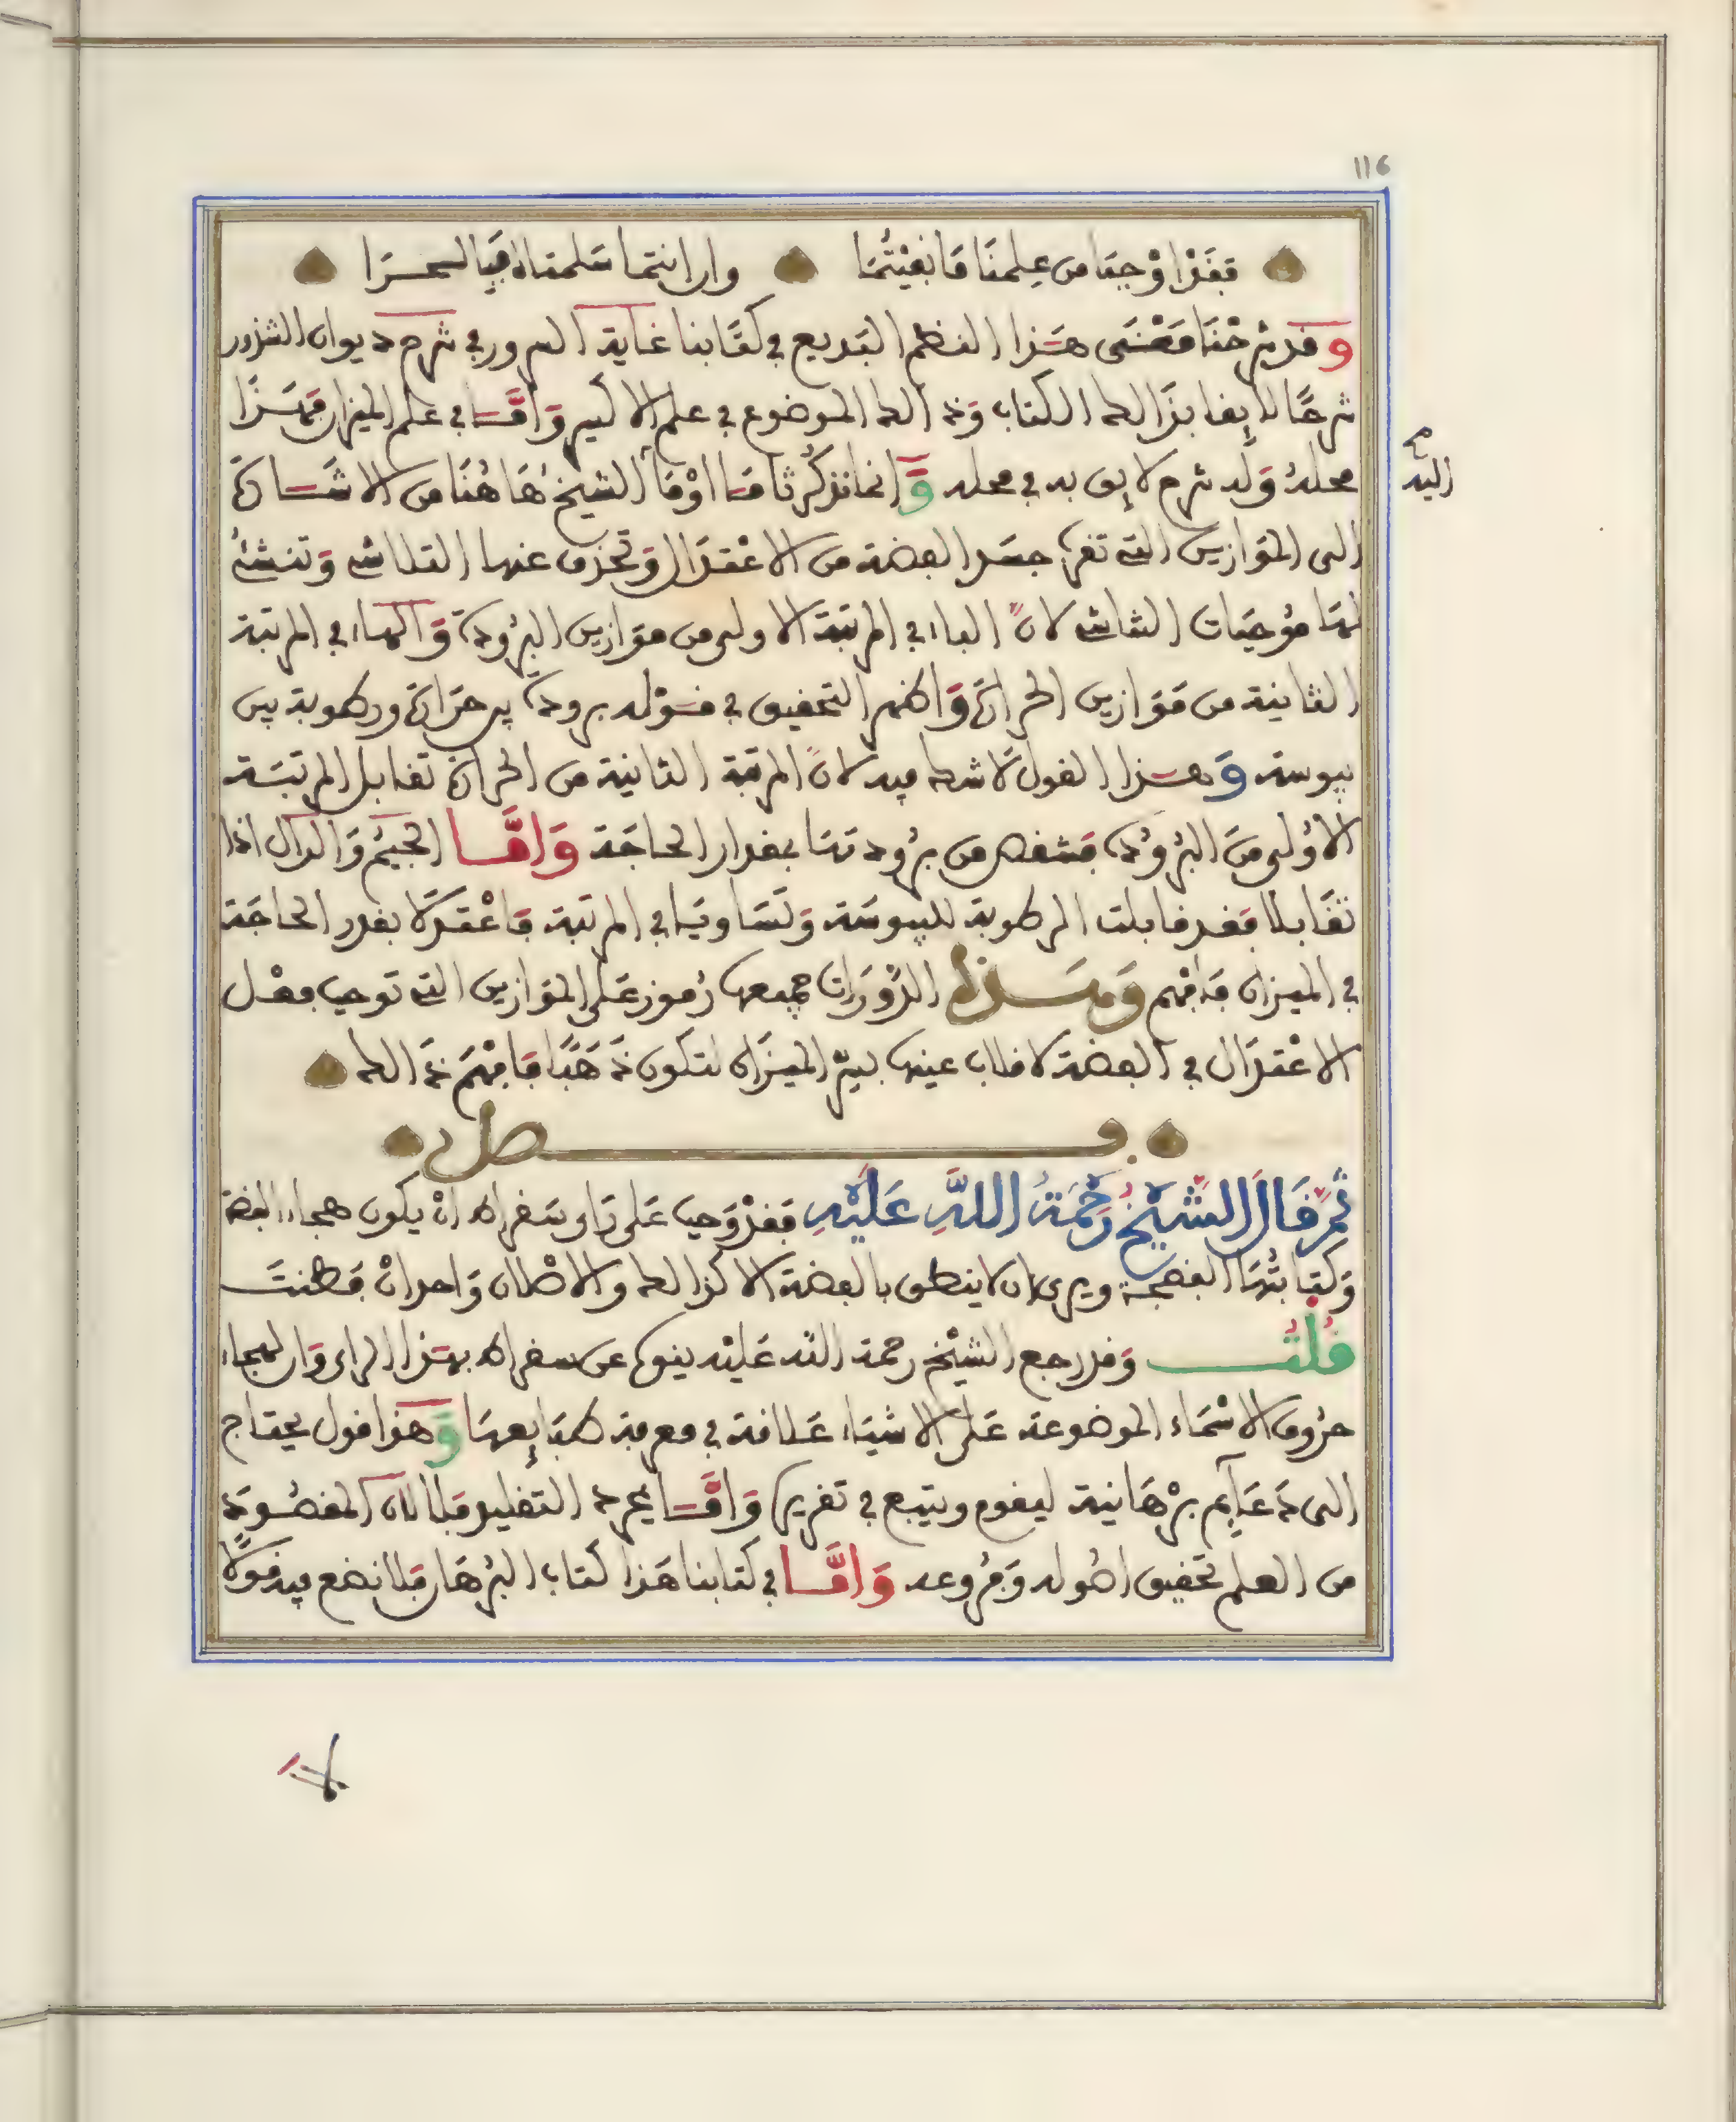 116
فقد اوجبتا من علمنا ما نفيتما وان انتما سلمتما لاقيا لسحرا
وقد شرحنا معنى هذا النظم البديع في كتابنا غاية السرور في شرح ديوان الشذور
شرحًا لايقا بذالك الكتاب وذالك الموضوع في علم الاكسير واما في علم الميزان فهذا
محله وله شرح لايق به في محله وانما نذكر ثامنا اوما الشيخ هاهنا من الاشارة
اليه
الى الموازين التي تقرب جسد الفضة من الاعتدال وتحذف عنها التلاشي وتنشئ
لها موجبات الثاشي لان الفاء في المرتبة الاولى من موازين البرودة والهاء في المرتبة
الثانية من موازين الحرارة واظهر التحقيق في قوله برودة بين حرارة ورطوبة بين
يبوسة وهذا القول لا شك فيه لان المرتبة الثانية من الحرارة تقابل المرتبة
الاولى من البرودة فتنقص من برودتها بمقدار الحاجة واما الجيم والدال اذا
تقابلا فقد قابلت الرطوبة لليبوسة وتساويا في المرتبة فاعتدلا بقدر الحاجة
في الميزان فافهم وهذه الدورات جميعها رموز على الموازين التي توجب فعل
الاعتدال في الفضة لانقلاب عينها بسر الميزان لتكون ذهبا فافهم ذالك
فصل
ثم قال الشيخ رحمة الله عليه فقد وجب على راي سقراط ان يكون هجاء الفضة
وكتابتها الفضجة ويرى ان لا ينطق بالفضة الا كذالك والاصلان واحد ان فطنت
قلت وقد رجع الشيخ رحمة الله عليه ينوه عن سقراط بهذا الراي وان لهجاء
حروف الاسماء الموضوعة على الاشياء علاقة في معرفة طبايعها وهذا قول يحتاج
الى دعايم برهانية ليقوم ويتبع في تقريره واما بمجرد التقليد فلا لان المقصود
من العلم تحقيق اصوله وفروعه واما في كتابنا هذا كتاب البرهان فلا نضع فيه قولا
لا